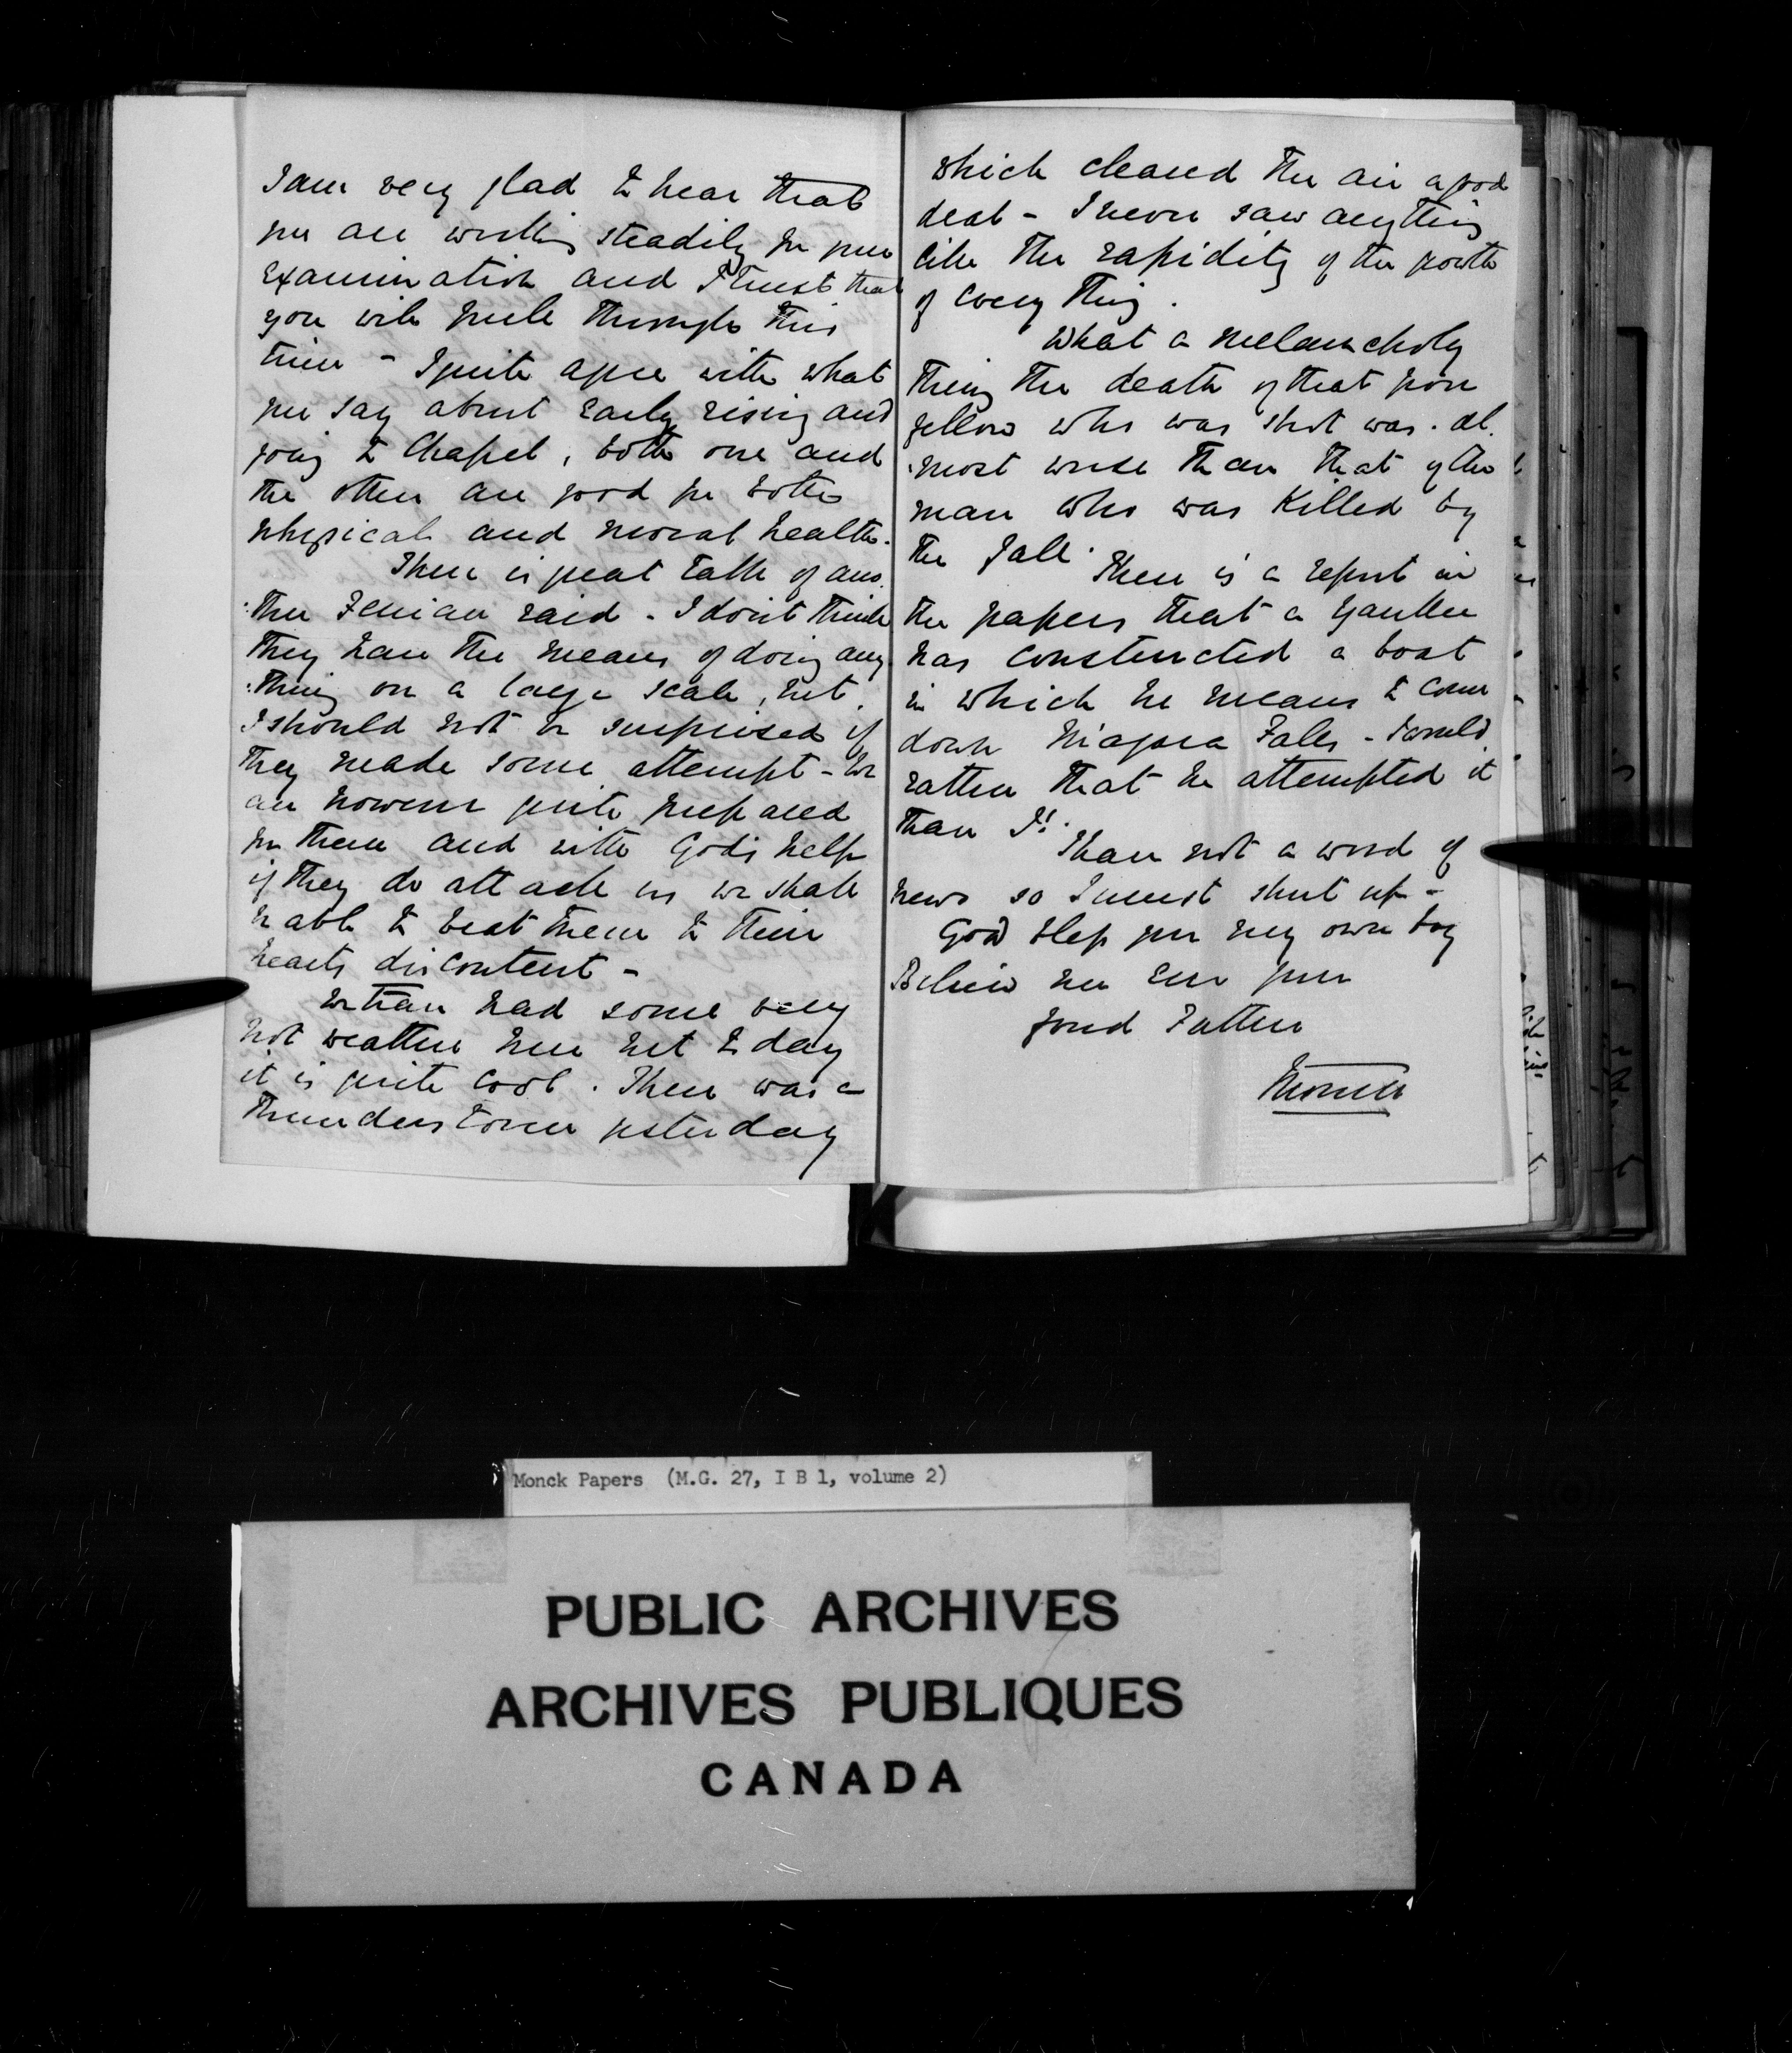 I am very glad to hear that
you are working steadily for your
examination and I trust that
you will pull through this
time - I quite agree with what
you say about early rising and
going to Chapel, both one and
the other are good for both
physical and moral health.
There is great talk of ano
:ther Fenian raid - I don't think
they have the means of doing any
:thing on a large scale, but
I should not be surprised if
they made some attempt - We
are however quite prepared
for them and with God's help
if they do attack us we shall
be able to beat them to their
hearts discontent -
We have had some very
hot weather here but to day
it is quite cool. There was a
thunderstorm yesterday
which cleared the air a good
deal - I never saw anything
like the rapidity of the growth
of every thing.
What a melancholy
thing the death of that poor
fellow who was shot was. al
:most worse than that of the
man who was killed by
the fall.
There is a report in
the papers that a Yankee
has constructed a boat
in which he means to come
down Niagara Falls -
rather that he attempted it
than I!
I have not a word of
news so I must shut up -
God bless you my own boy
Believe me ever your
fond Father
Monck
Monck Papers (M.G. 27, I B 1, volume 2)
PUBLIC ARCHIVES
ARCHIVES PUBLIQUES
CANADA